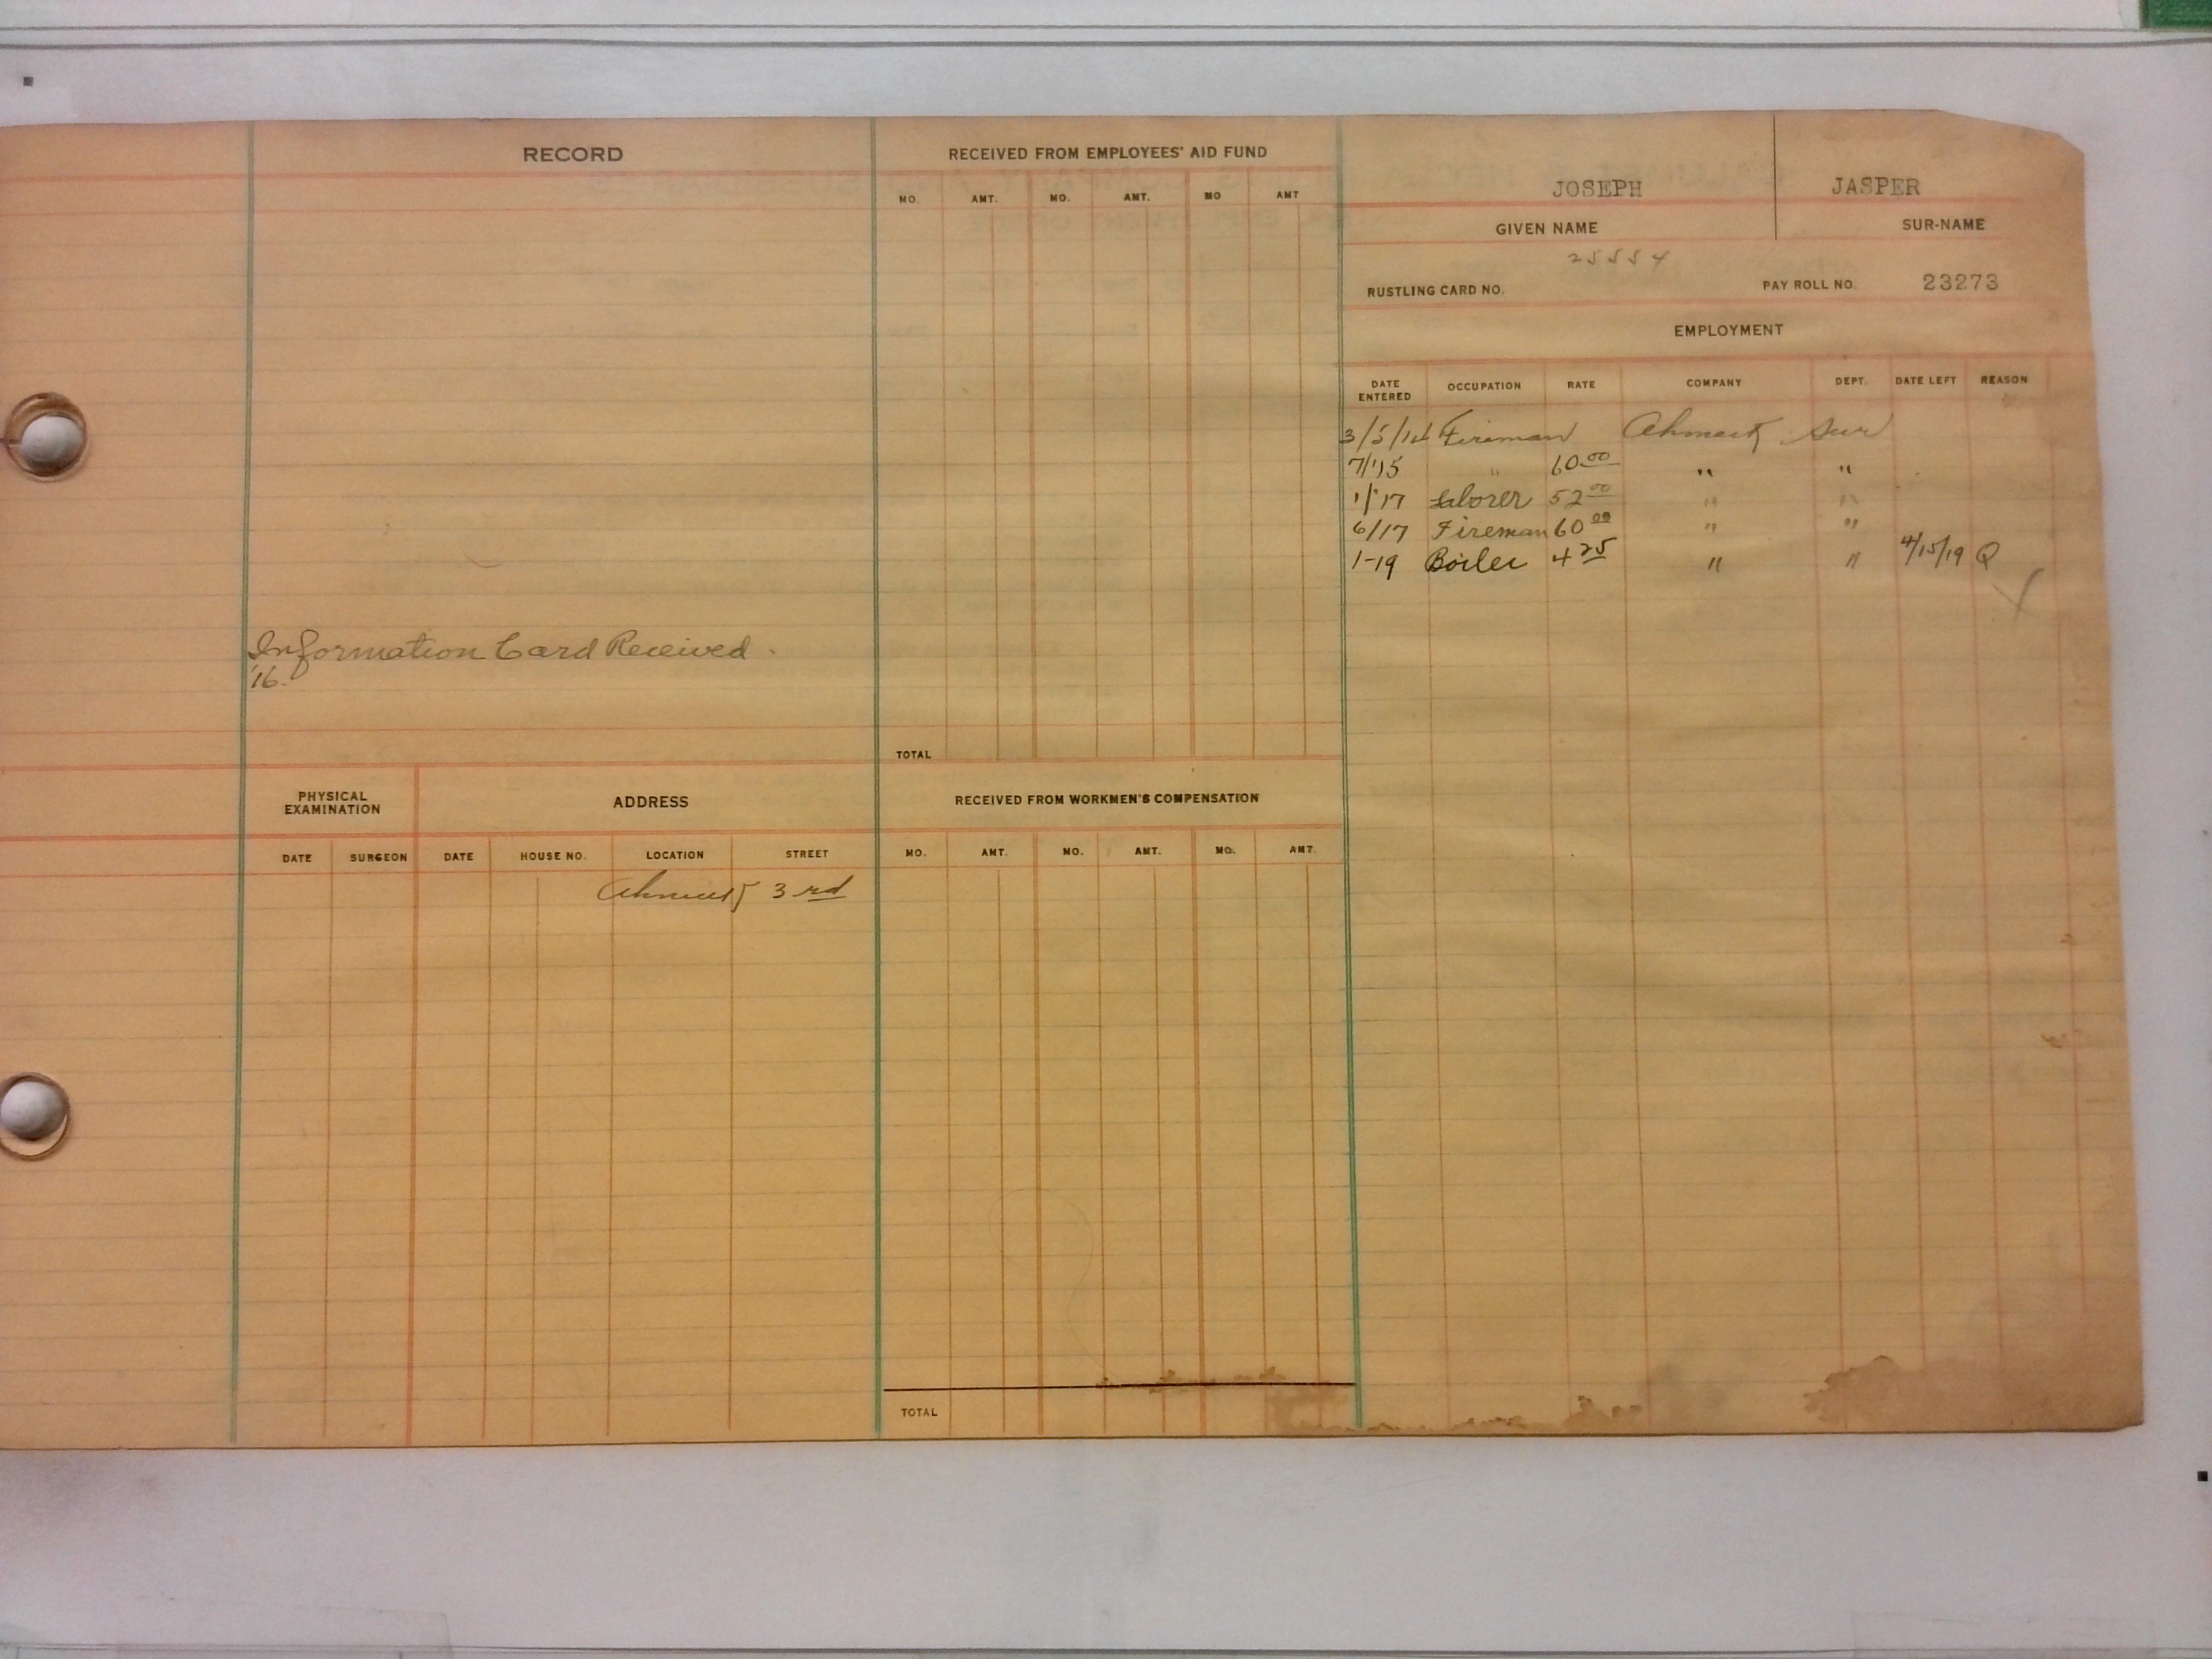 RECORD
Information Card Received.
'16.
PHYSICAL EXAMINATION
ADDRESS
DATE SURGEON DATE HOUSE NO. LOCATION STREET
Ahmeek 3rd
RECEIVED FROM EMPLOYEES' AID FUND
MO. AMT. MO. AMT. MO AMT
TOTAL
RECEIVED FROM WORKMEN'S COMPENSATION
MO. AMT. MO. AMT. MO. AMT.
TOTAL
JOSEPH JASPER
GIVEN NAME SUR-NAME
25554
RUSTLING CARD NO. PAY ROLL NO. 23273
EMPLOYMENT
DATE ENTERED OCCUPATION RATE COMPANY DEPT. DATE LEFT REASON
3/5/14 Fireman Ahmeek Sur
7/'15 " 60.00 " "
1/'17 Laborer 52.00 " "
6/17 Fireman 60.00 " "
1-19 Boiler 4.25 " " 4/15/19 Q